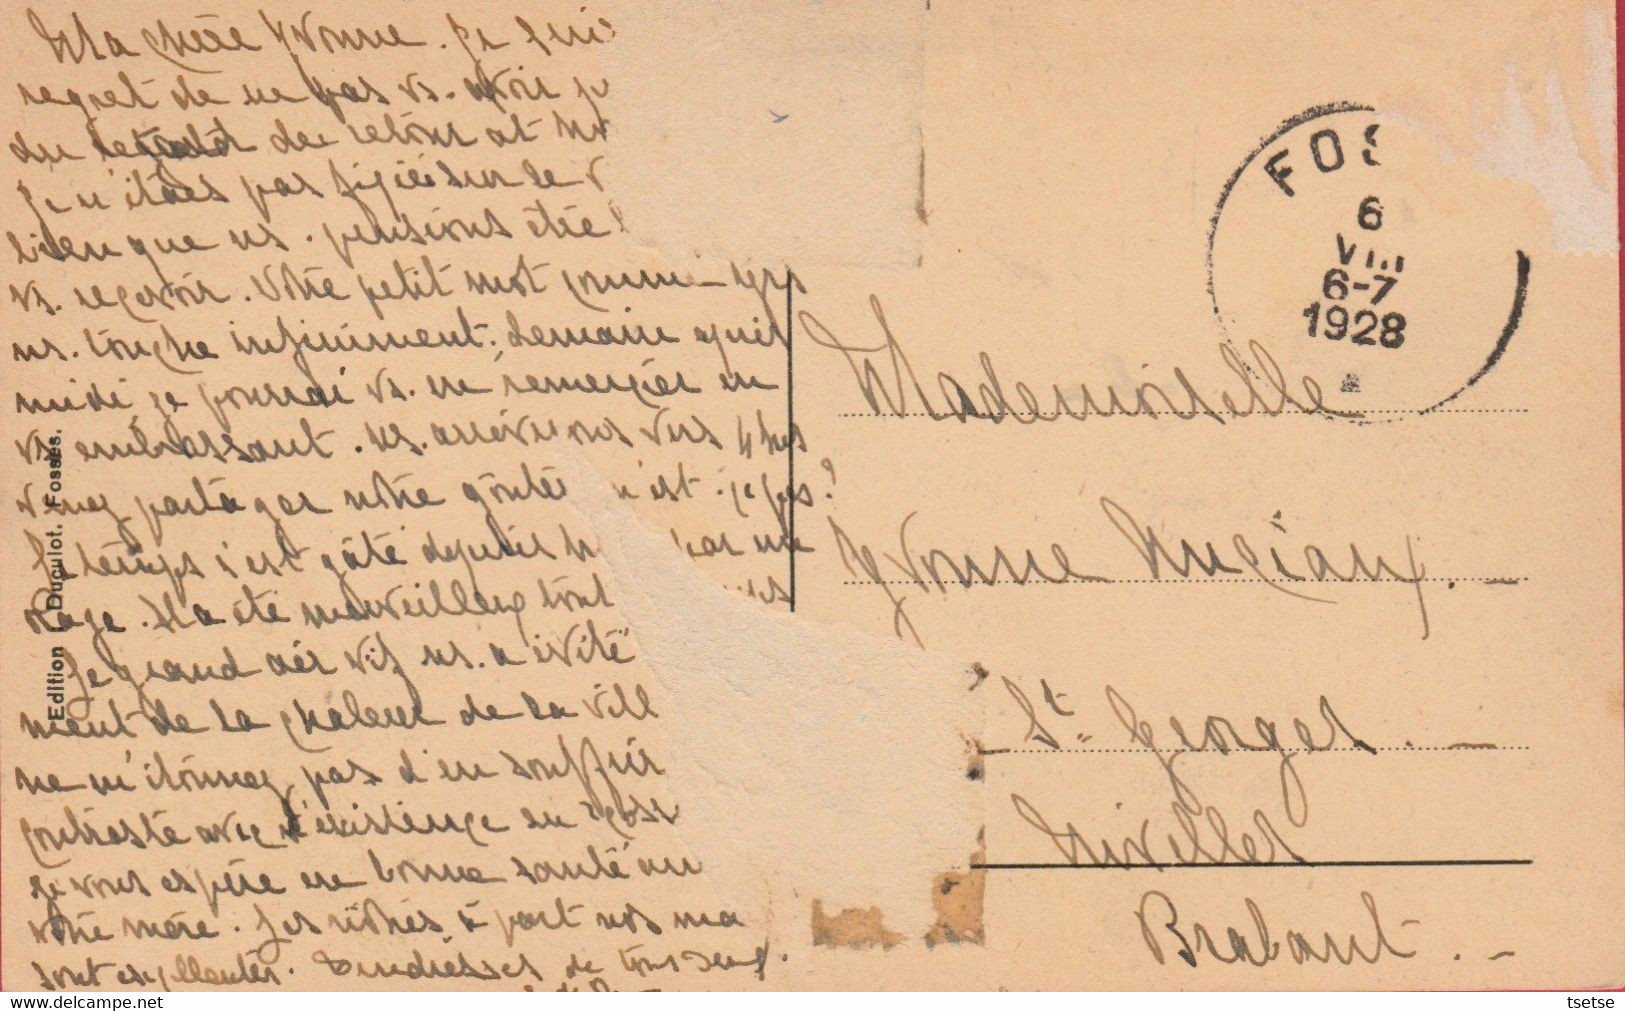 Ma chère Yvonne. Je suis
regret de ne pas vs. avoir
du retour at
Je n'étais pas sur le
bien que ns. pensions été
vs. recevoir. Votre petit mot
ns. touche infiniment. demain après
midi je pourrai vs. en remercier en
vs. embrassant. Ns. arriverons vers 4 hrs
venez partager notre goûter n'est-ce pas?
Le temps s'est gâté depuis par un
orage. Il a été merveilleux tout
Le grand air vif ns. a évité
ment de la chaleur de la vill
ne m'étonnez pas d'en souffrir
contraste avec l'existence en
je vous espère en bonne santé
votre mère. Les nôtres, à part nos ma
sont excellentes. Tendresses de tous
Edition Duculot. Fosses.
FOS
6
VIII
6-7
1928
Mademoiselle
Yvonne
St. Georges.
Nivelles
Brabant.
tsetse